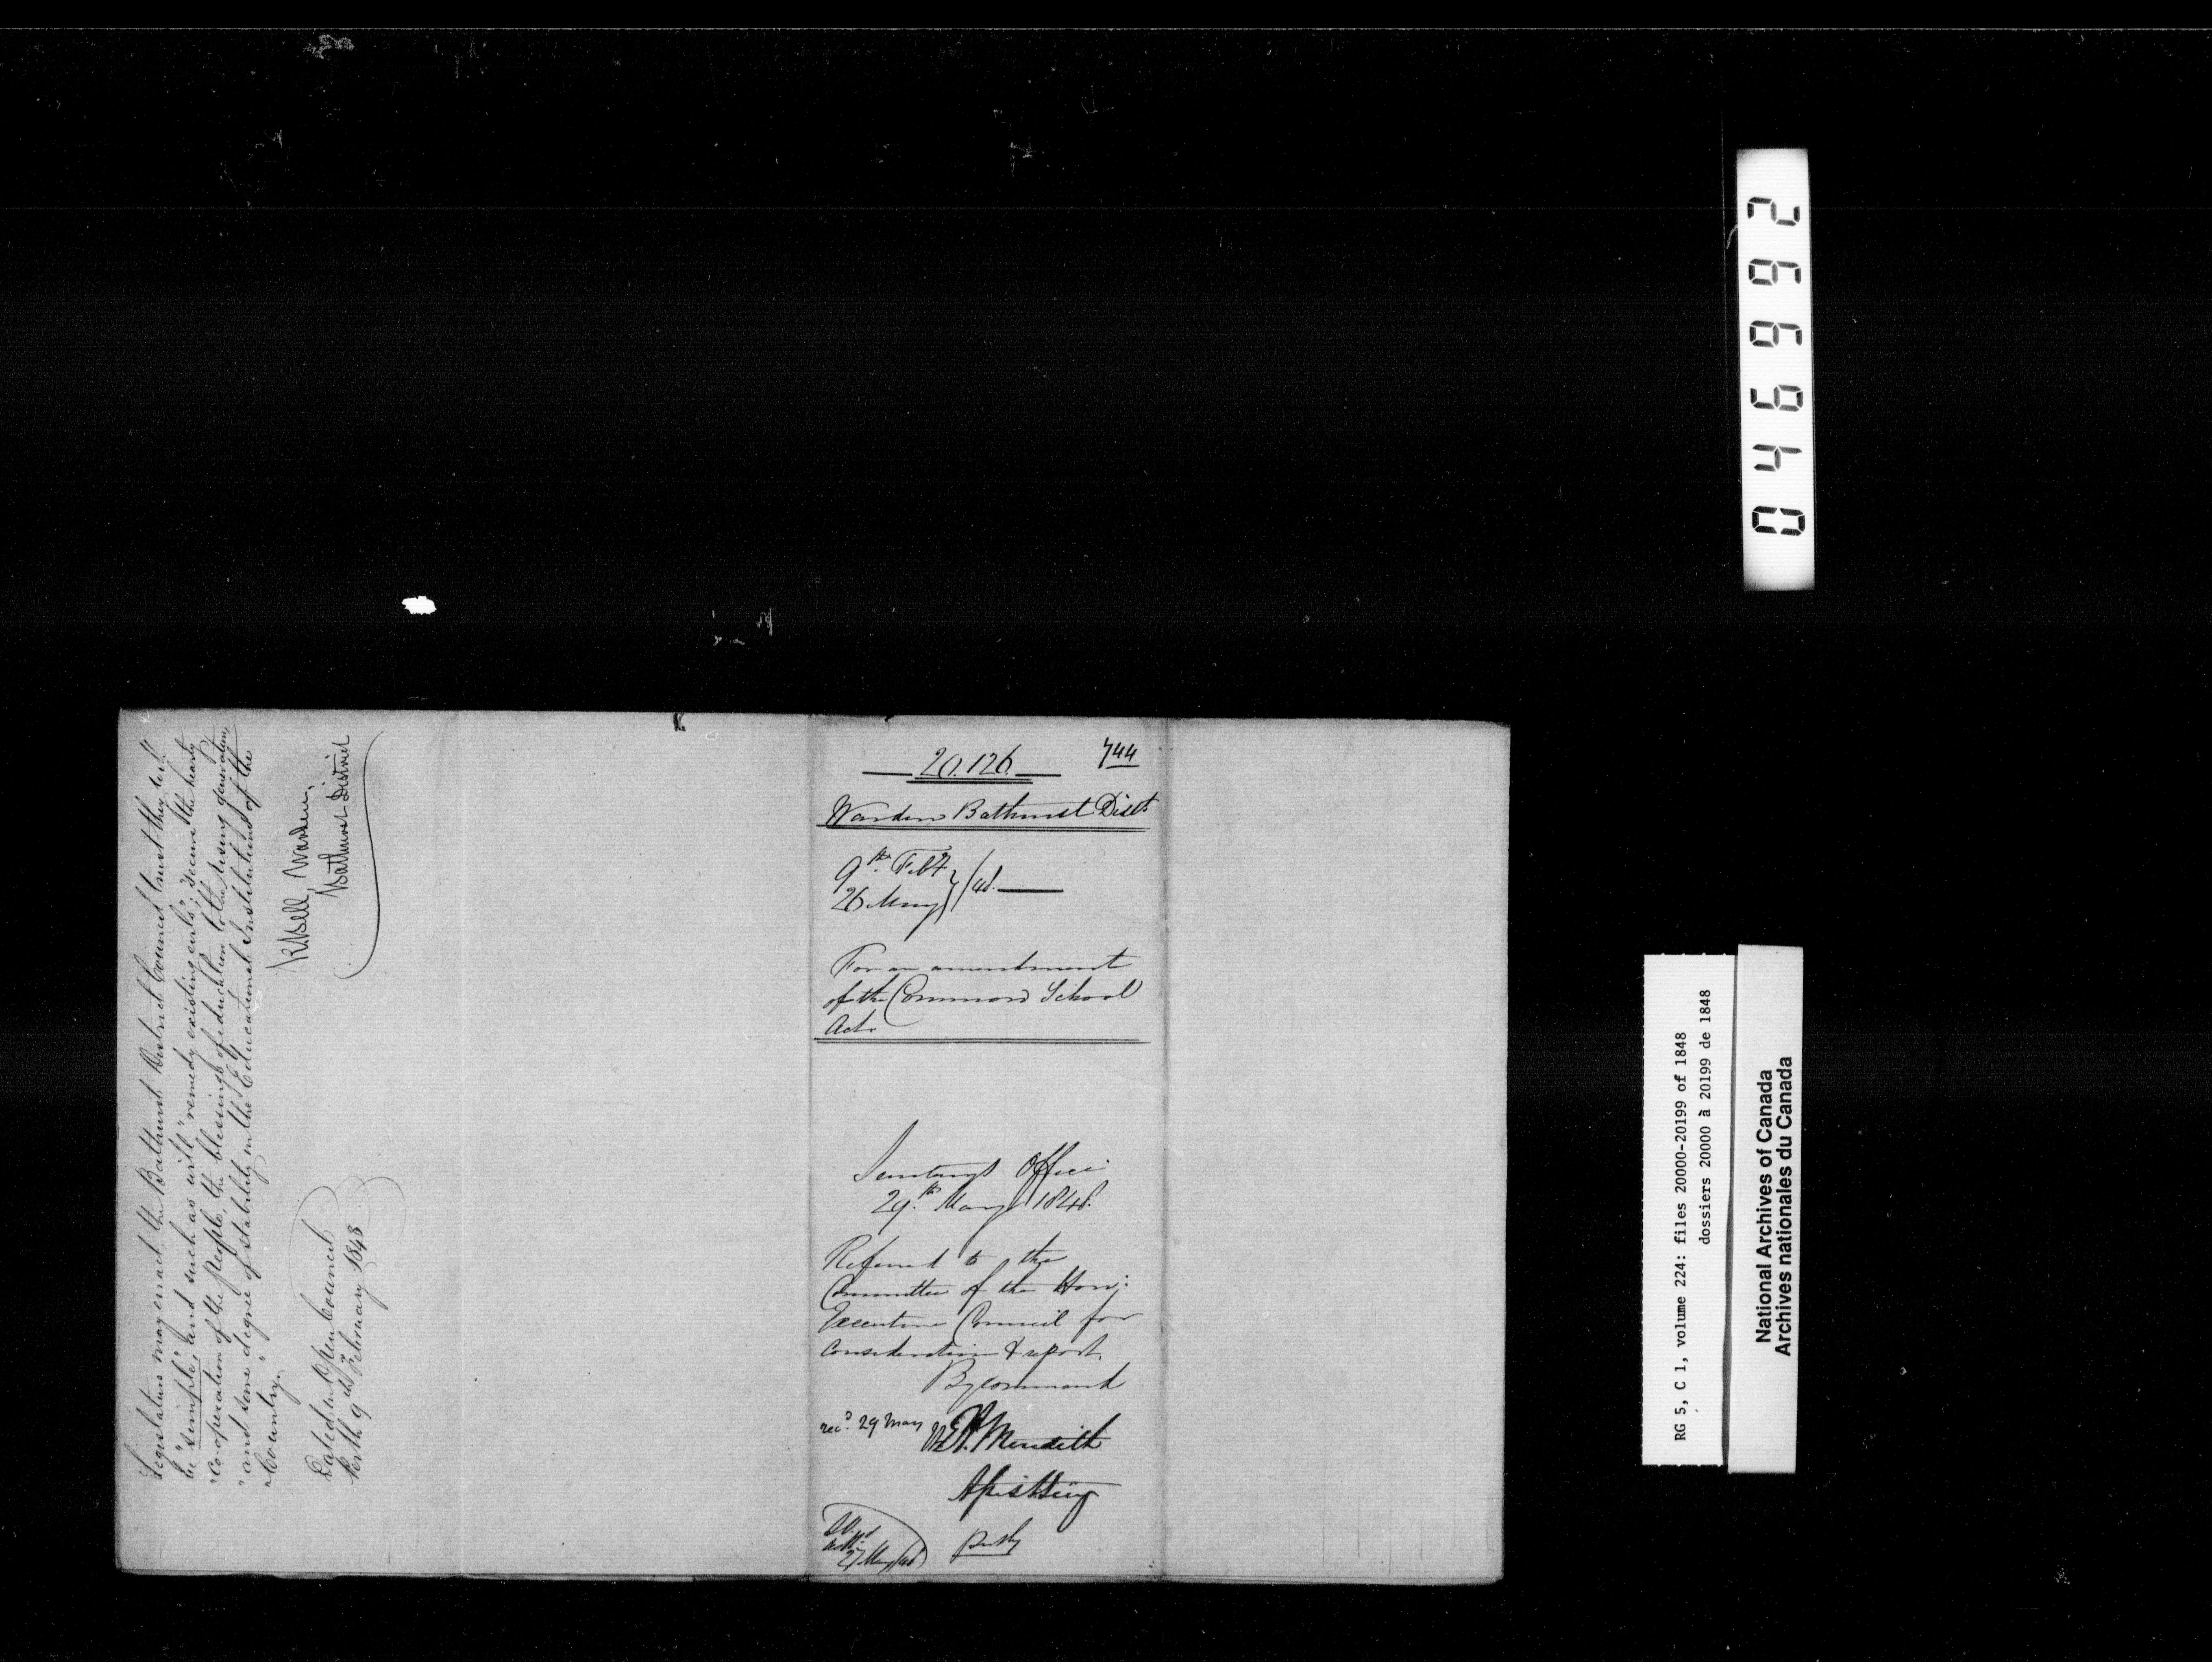 Legislature may enact, the Bathurst District Council trust they will
be "simple" and such as will "remedy existing evils"; "secure the hearty
"co-operation of the People, the blessings of education to the rising generation,
"and some degree of stability in the Educational Institutions of the
"Country."
Dated in Open Council
Perth 9th February 1848
R Bell, Warden,
Bathurst District
20.126
744
Warden Bathurst Distt
9th Feby
26 May } /48.
For an amendment
of the Common School
Act.
Secretary's Office
29th May 1848.
Referred to the
Committee of the Hon:
Executive Council for
consideration & report.
By command
recd. 29 May
W H Meredith
Asst Secy
27 May/48
National Archives of Canada
Archives nationales du Canada
RG 5, C 1, volume 224: files 20000-20199 of 1848
dossiers 20000 à 20199 de 1848
046992